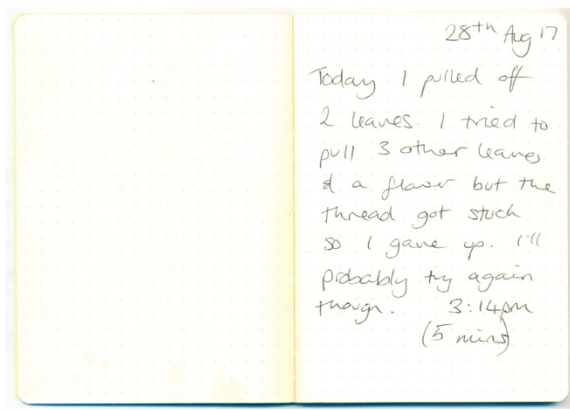 28th Aug 17
Today I pulled off
2 leaves. I tried to
pull 3 other leaves
& a flower but the
thread got stuck
so I gave up. I'll
probably try again
though. 3:14pm
(5 mins)